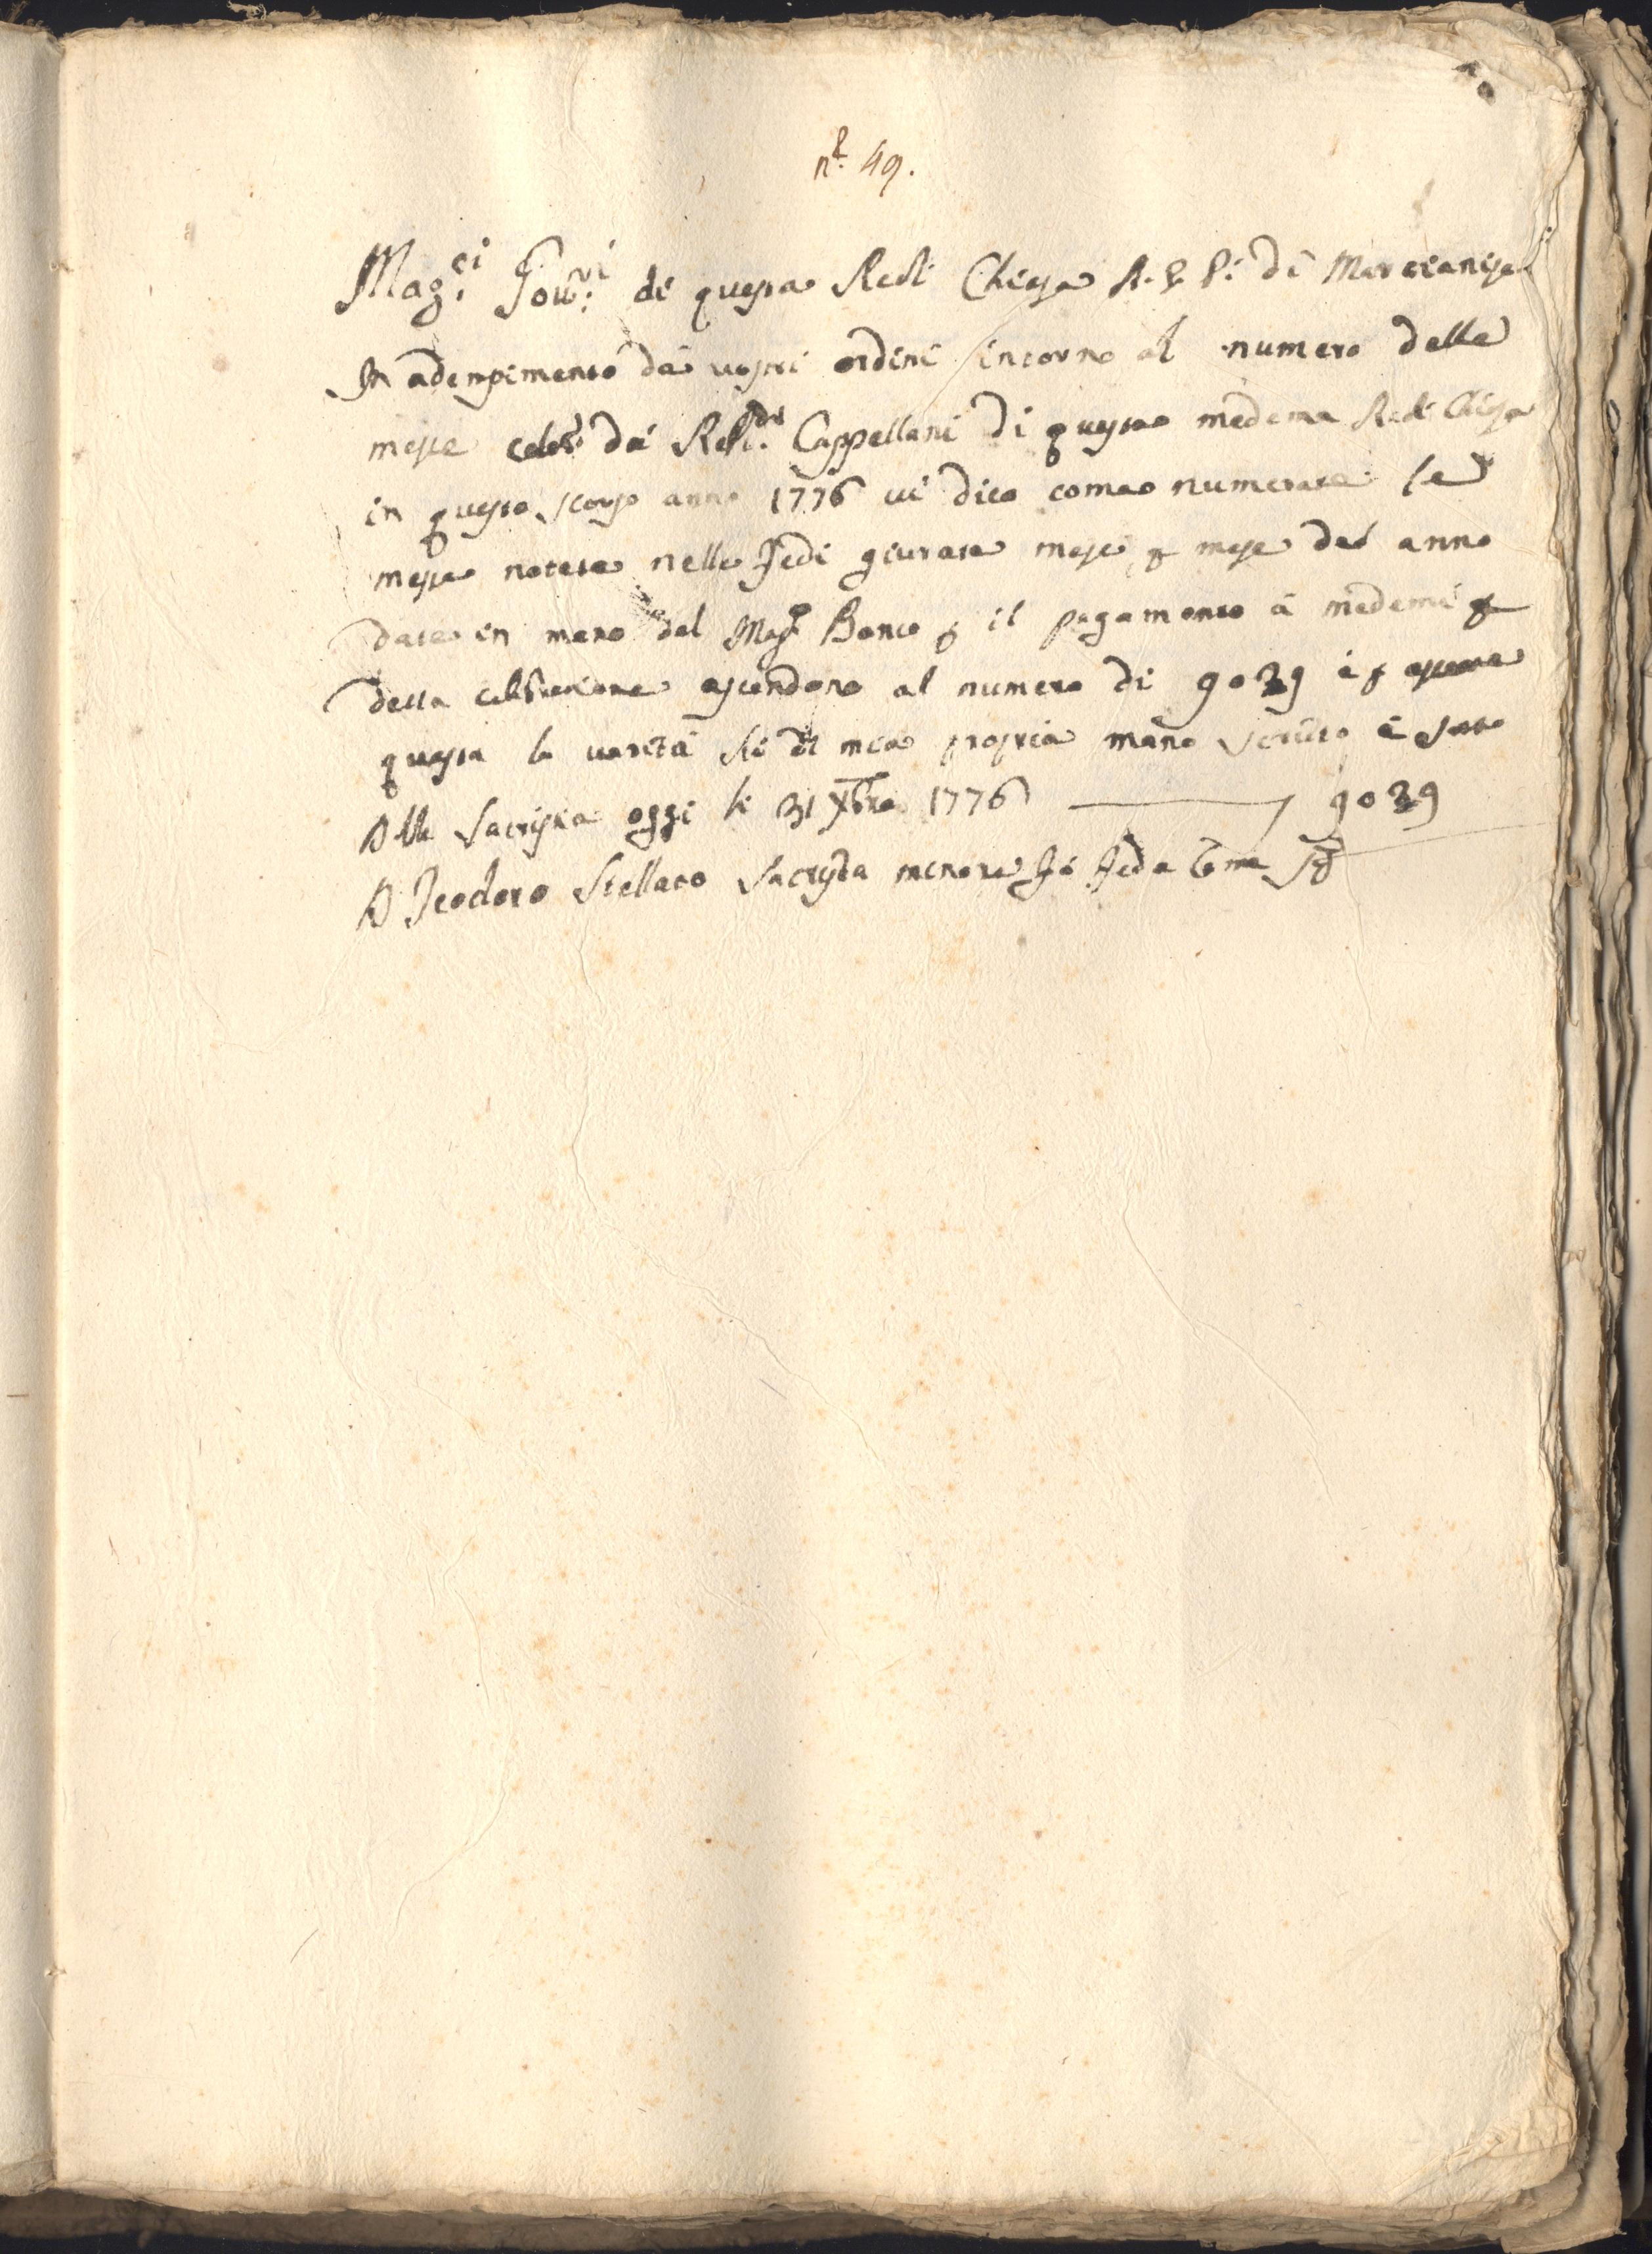 n.º 49.
Mag.ci Gov.ri di questa Real Chiesa A. G. P. di Marcianise
In adempimento dei vostri ordini intorno al numero delle
messe celeb.e dai Rev.di Cappellani di questa medema Real Chiesa
in questo scorso anno 1776 vi dico come numerate le
messe notate nelle Fedi giurate mese p mese del anno
date in mano del Mag.co Banco p il pagamento a medemi p
detta celebrazione ascendono al numero di 9039 e p essere
questa la verità hò di mia propria mano scritto e
Dalla Sacrista oggi li 31 Xbre 1776 9039
D Teodoro Stellato Sacrista minore Fò Fede come Sopra